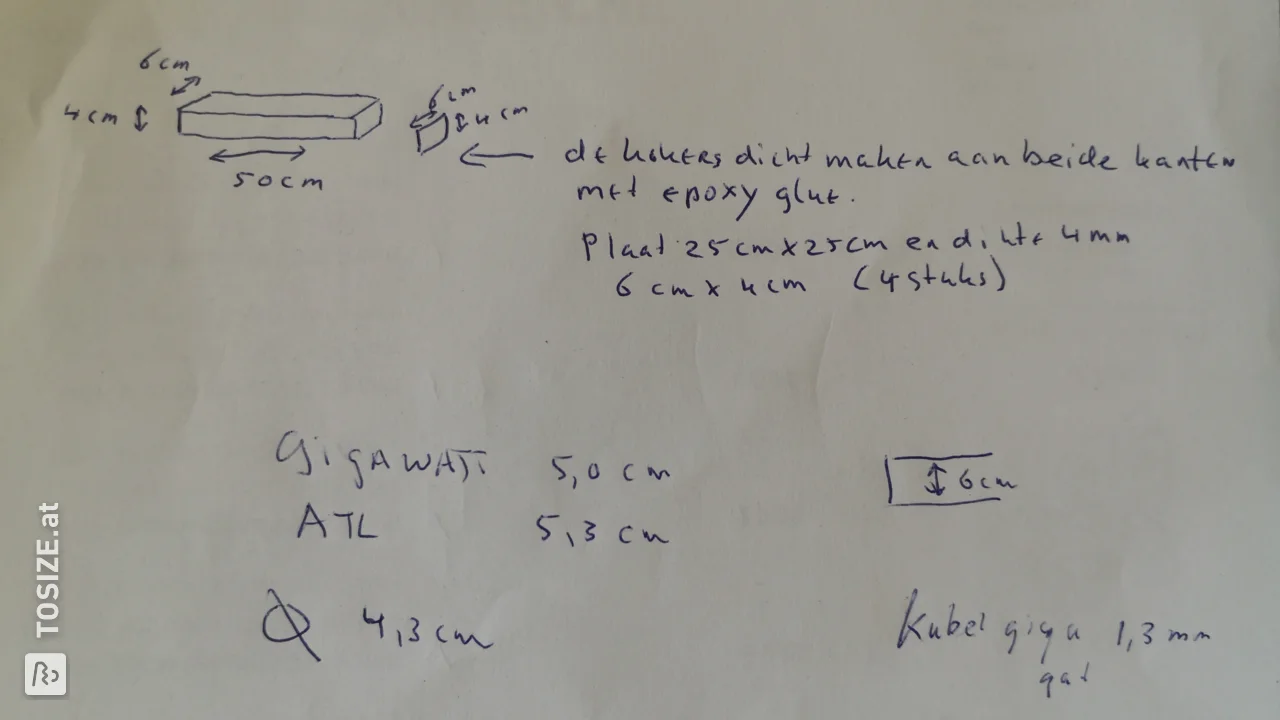 6cm
4cm
50cm
6cm
4cm
de kokers dicht maken aan beide kanten
met epoxy glue.
Plaat 25cm x 25cm en dikte 4mm
6 cm x 4cm (4 stuks)
GigAWATT 5,0 cm
ATL 5,3 cm
6cm
Ø 4,3 cm
Kabel giga 1,3 mm
gat
TOSIZE.at